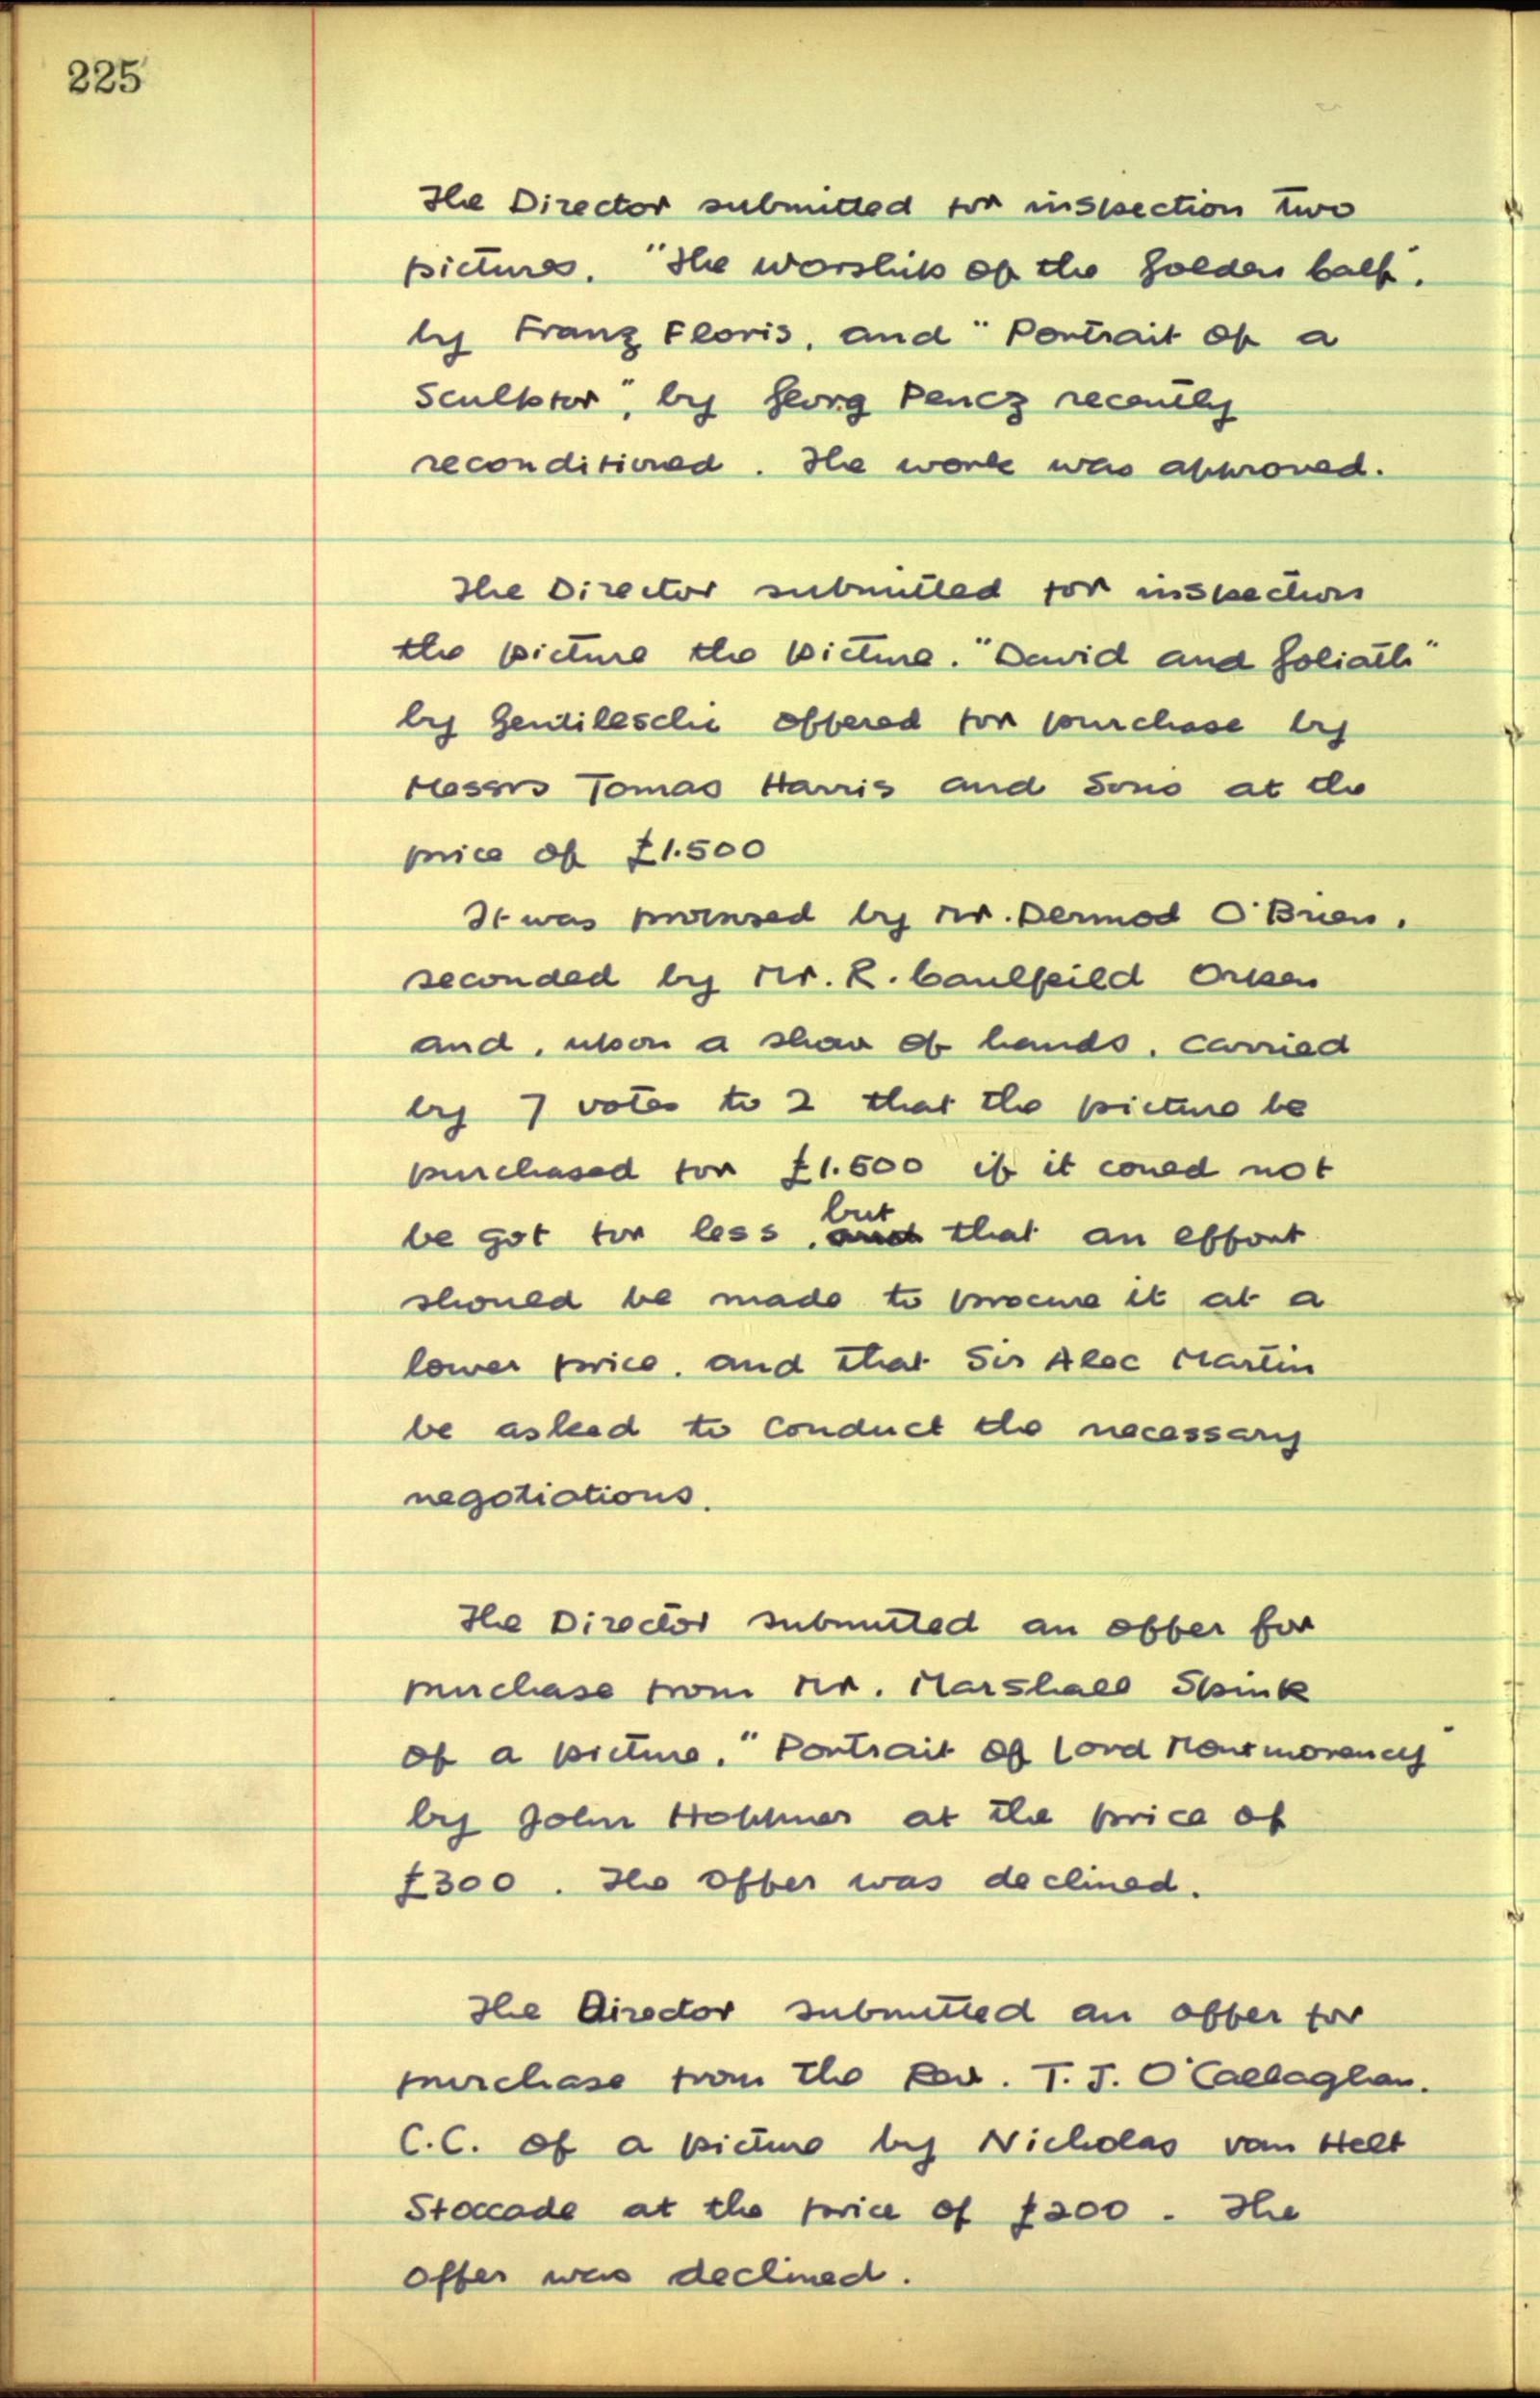 225
The Director submitted for inspection two
pictures. "The Worship of the Golden Calf".
by Franz Floris, and "Portrait of a
Sculptor", by Georg Pencz recently
reconditioned. The work was approved.
The Director submitted for inspection
the picture the picture. "David and Goliath"
by Gentileschi offered for purchase by
Messrs Tomas Harris and Sons at the
price of £1.500
It was proposed by Mr. Dermod O'Brien.
seconded by Mr. R. Caulfeild Orpen
and, upon a show of hands. carried
by 7 votes to 2 that the picture be
purchased for £1.500 if it could not
but
be got for less. and that an effort
should be made to procure it at a
lower price. and that Sir Alec Martin
be asked to conduct the necessary
negotiations.
The Director submitted an offer for
purchase from Mr. Marshall Spink
of a picture. "Portrait of Lord Montmorency"
by John Hoppner at the price of
£300. The offer was declined.
The Director submitted an offer for
purchase from the Rev. T. J. O'Callaghan.
C.C. of a picture by Nicholas van Helt
Stoccade at the price of £200. The
offer was declined.